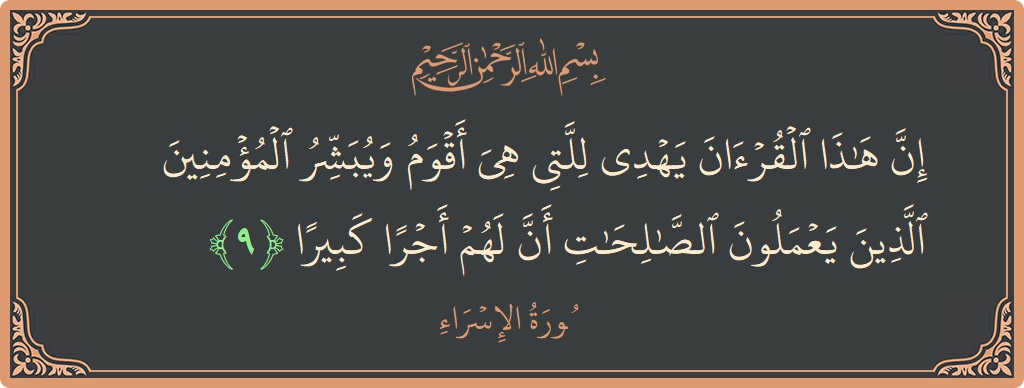 بِسْمِ اللهِ الرَّحْمٰنِ الرَّحِيْمِ
إِنَّ هَـٰذَا ٱلْقُرْءَانَ يَهْدِى لِلَّتِى هِىَ أَقْوَمُ وَيُبَشِّرُ ٱلْمُؤْمِنِينَ
ٱلَّذِينَ يَعْمَلُونَ ٱلصَّـٰلِحَـٰتِ أَنَّ لَهُمْ أَجْرًا كَبِيرًا ﴿٩﴾
سُورَةُ الإِسْرَاءِ